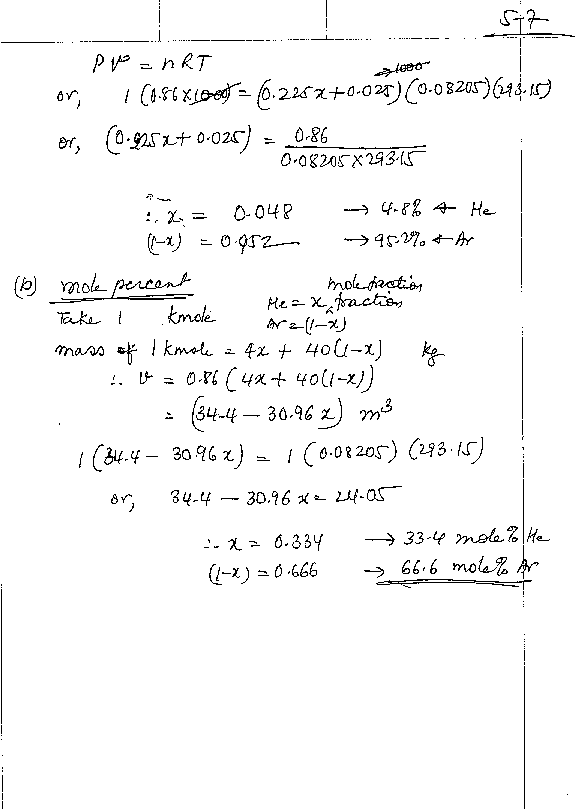 5-7
PV = nRT
→1000
or, 1 (0.86×1000) = (0.225x+0.025)(0.08205)(293.15)
or, (0.225x+0.025) = 0.86 / 0.08205×293.15
∴ x = 0.048 → 4.8% ← He
(1-x) = 0.952 → 95.2% ← Ar
(b) mole percent mole fraction
Take 1 kmole He = x fraction
Ar = (1-x)
mass of 1 kmole = 4x + 40(1-x) kg
∴ V = 0.86 (4x + 40(1-x))
= (34.4 - 30.96 x) m³
1 (34.4 - 30.96 x) = 1 (0.08205) (293.15)
or, 34.4 - 30.96 x = 24.05
∴ x = 0.334 → 33.4 mole% He
(1-x) = 0.666 → 66.6 mole% Ar